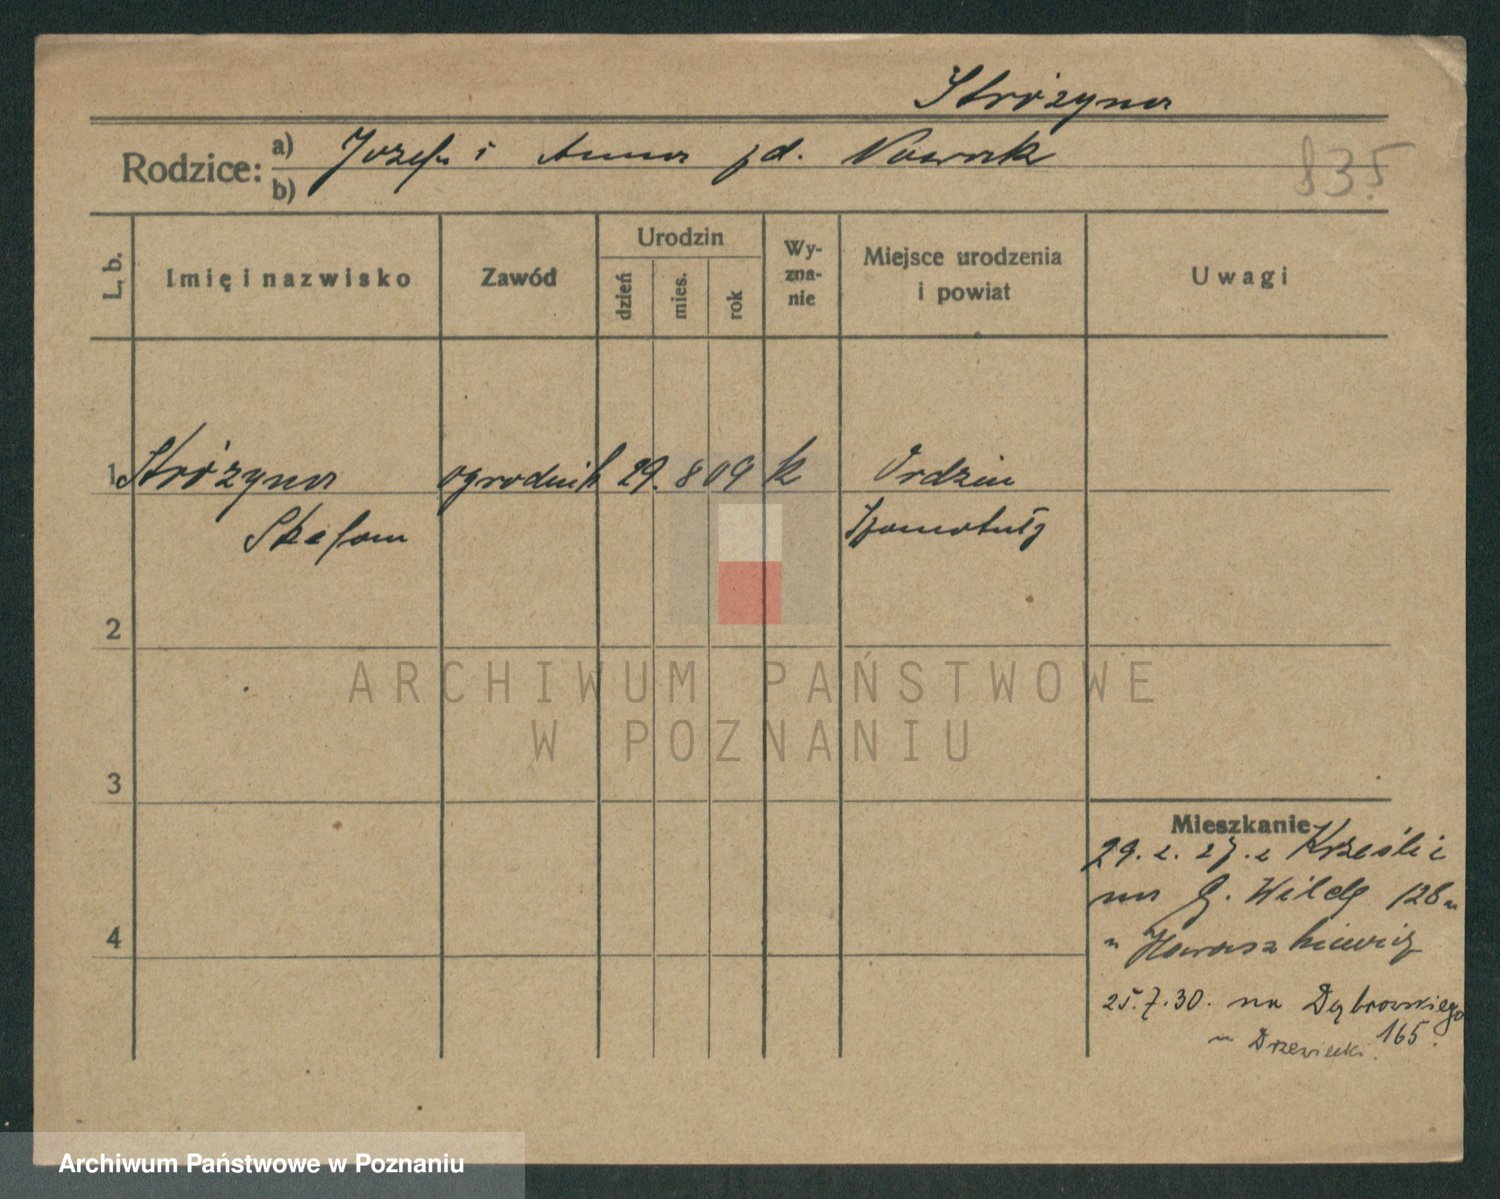 Stróżyna
Rodzice: a) Józef i Anna zd. Nowak
b)
835
L. b.
Imię i nazwisko
Zawód
Urodzin
dzień
mies.
rok
Wy-
zna-
nie
Miejsce urodzenia
i powiat
Uwagi
1 Stróżyna ogrodnik 29. 8 09 k Ordzin
Stefan Szamotuły
2
ARCHIWUM PAŃSTWOWE
W POZNANIU
3
Mieszkanie
29. 2. 27. z
na G. Wildę 128
4
25. 7. 30. na Dąbrowskiego
165.
Drzewiecki.
Archiwum Państwowe w Poznaniu